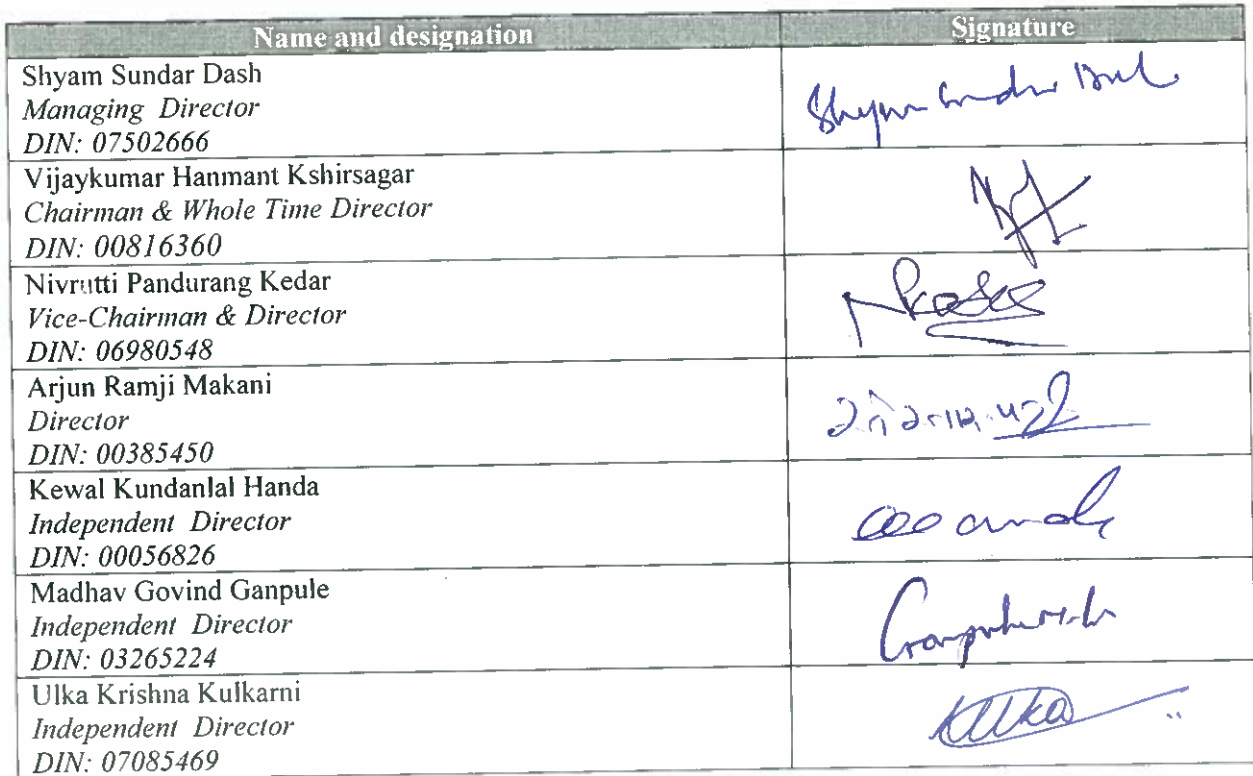 Name and designation Signature
Shyam Sundar Dash
Managing Director
DIN: 07502666
Shyam Sundar Dash
Vijaykumar Hanmant Kshirsagar
Chairman & Whole Time Director
DIN: 00816360
Nivrutti Pandurang Kedar
Vice-Chairman & Director
DIN: 06980548
Arjun Ramji Makani
Director
DIN: 00385450
Kewal Kundanlal Handa
Independent Director
DIN: 00056826
Madhav Govind Ganpule
Independent Director
DIN: 03265224
Ulka Krishna Kulkarni
Independent Director
DIN: 07085469